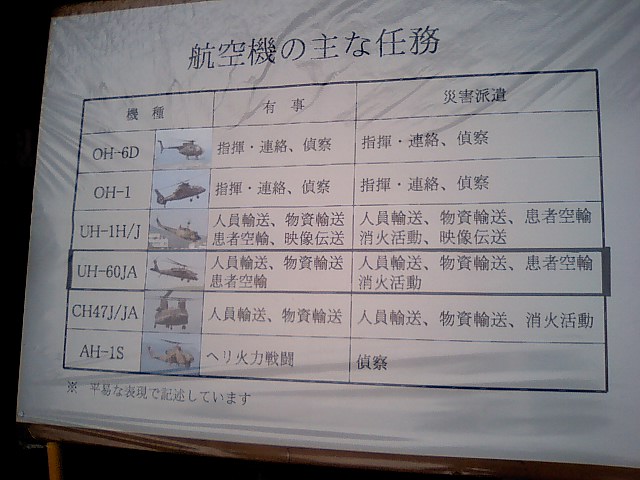 航空機の主な任務
機種 有事 災害派遣
OH-6D 指揮・連絡、偵察 指揮・連絡、偵察
OH-1 指揮・連絡、偵察 指揮・連絡、偵察
UH-1H/J 人員輸送、物資輸送 人員輸送、物資輸送、患者空輸
患者空輸、映像伝送 消火活動、映像伝送
UH-60JA 人員輸送、物資輸送 人員輸送、物資輸送、患者空輸
患者空輸 消火活動
CH47J/JA 人員輸送、物資輸送 人員輸送、物資輸送、消火活動
AH-1S ヘリ火力戦闘 偵察
※ 平易な表現で記述しています